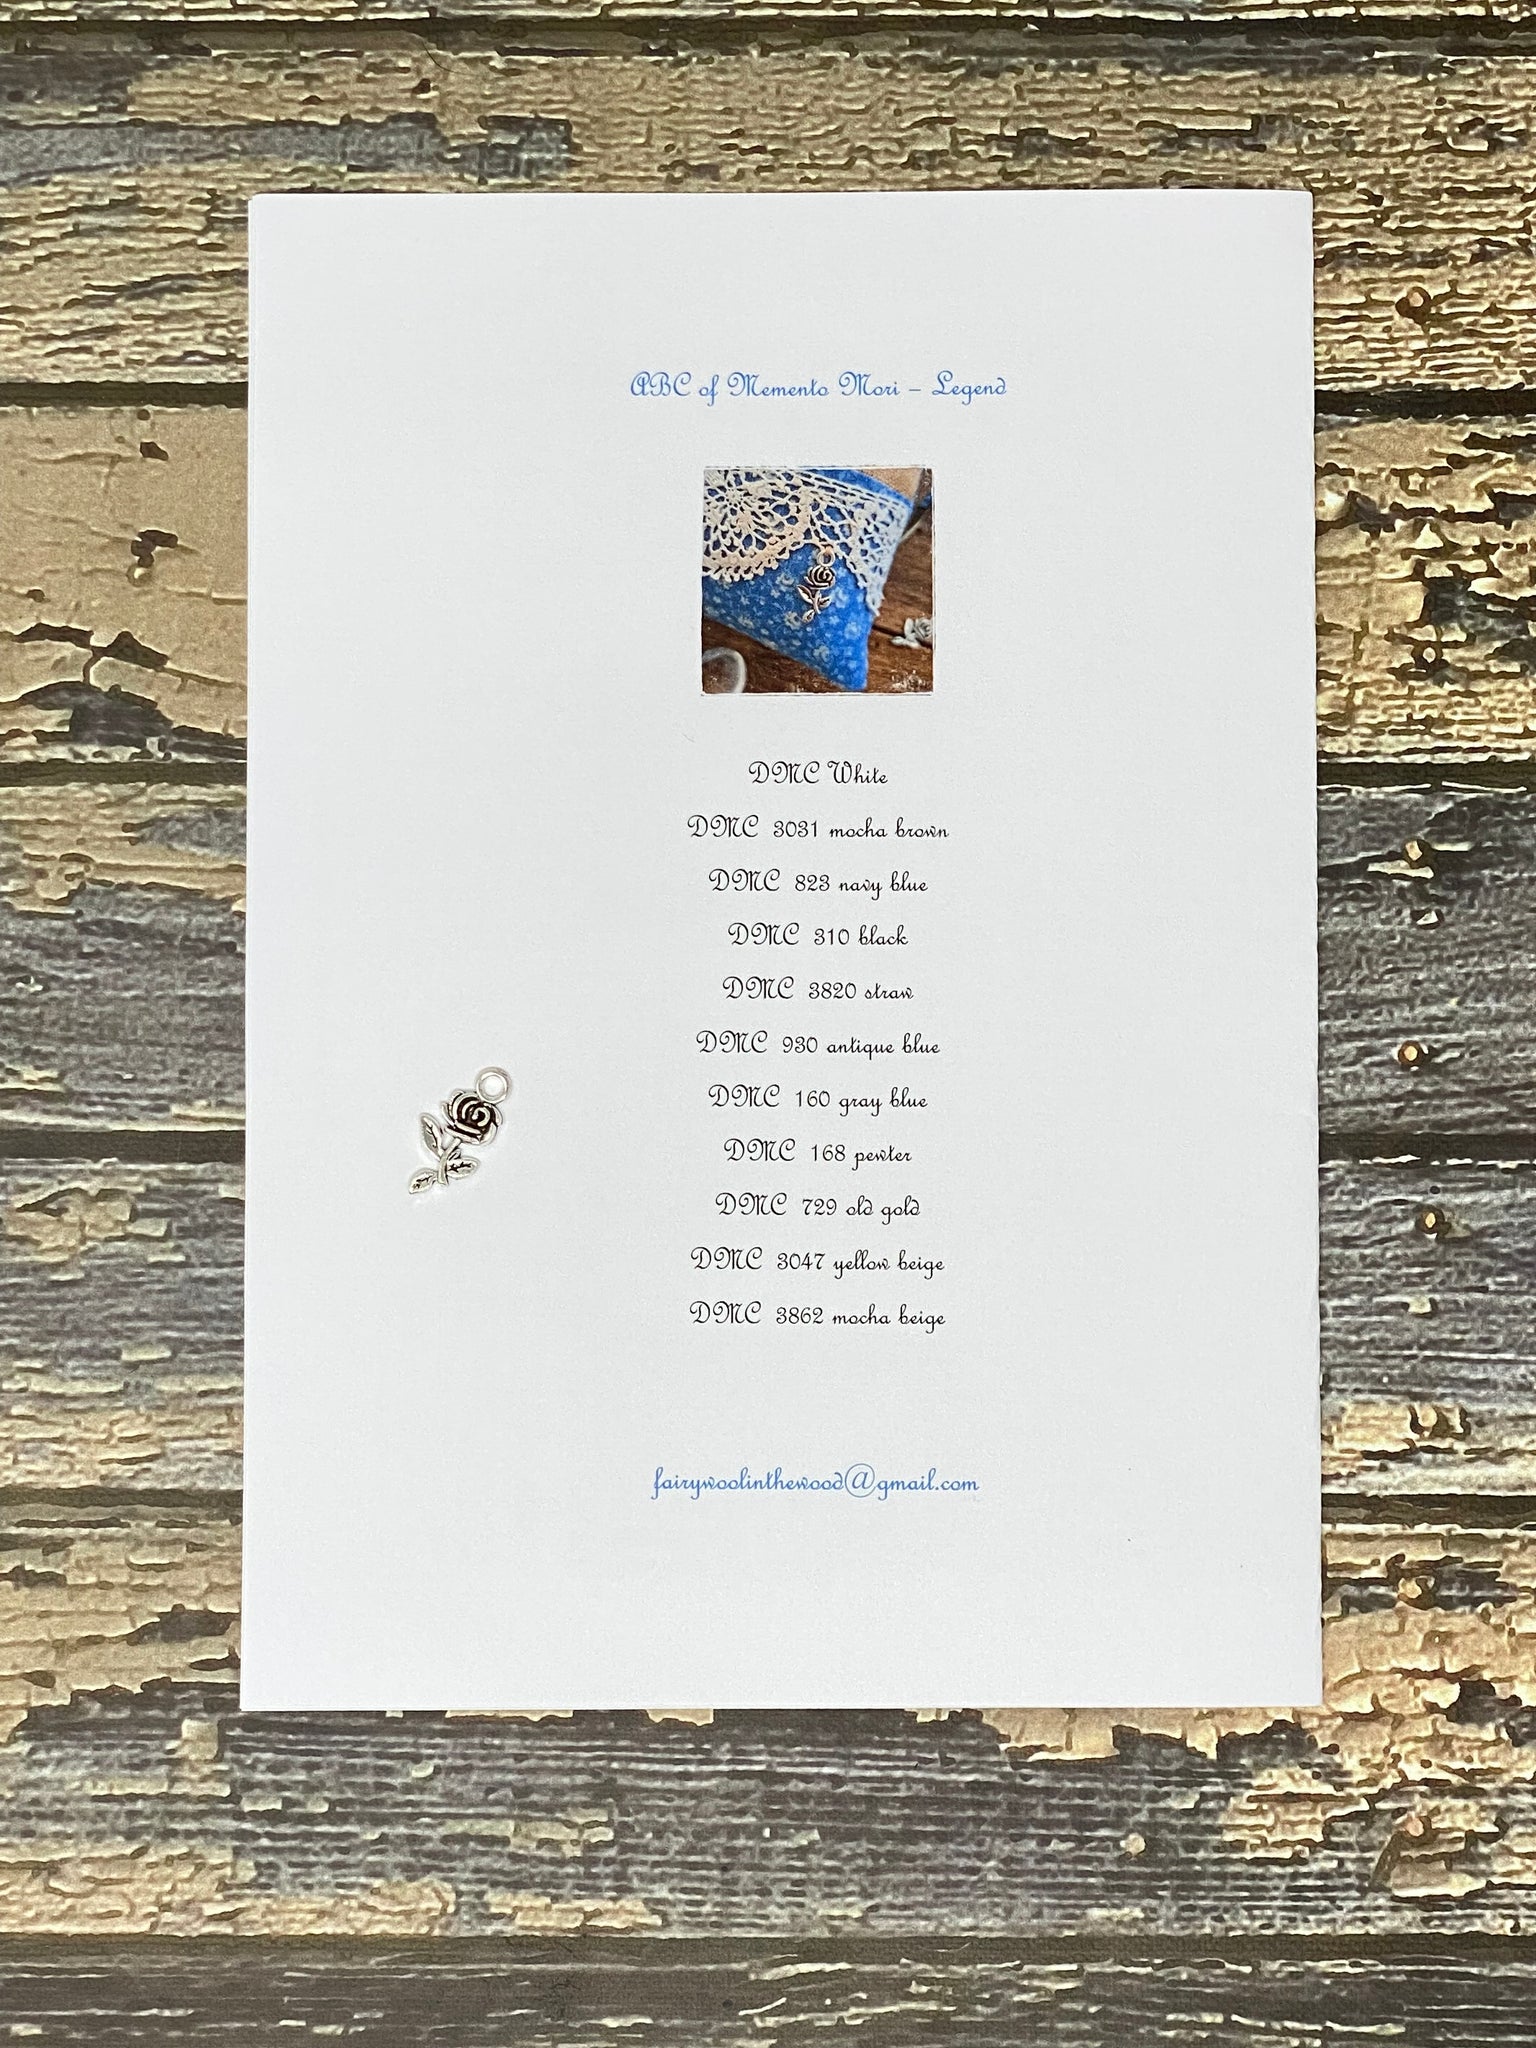 ABC of Memento Mori – Legend
DMC White
DMC 3031 mocha brown
DMC 823 navy blue
DMC 310 black
DMC 3820 straw
DMC 930 antique blue
DMC 160 gray blue
DMC 168 pewter
DMC 729 old gold
DMC 3047 yellow beige
DMC 3862 mocha beige
fairywoolinthewood@gmail.com